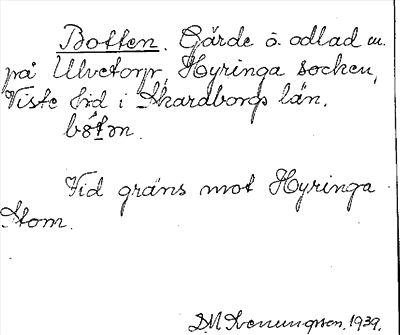 Botten. Gärde o. odlad m.
på Ulvetorp, Hyringa socken,
Viste hd i Skaraborgs län.
bŏt̄ən.
Vid gräns mot Hyringa
Stom.
D.M Svenungsson. 1939.